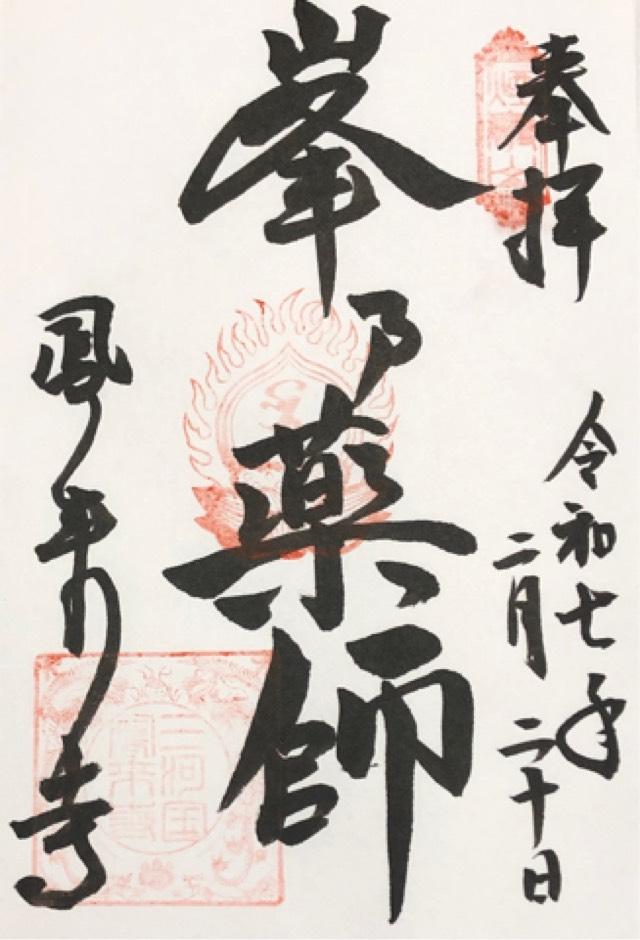 奉拝
令和七年
二月二十日
峯乃薬師
鳳来寺
三河国
鳳来寺